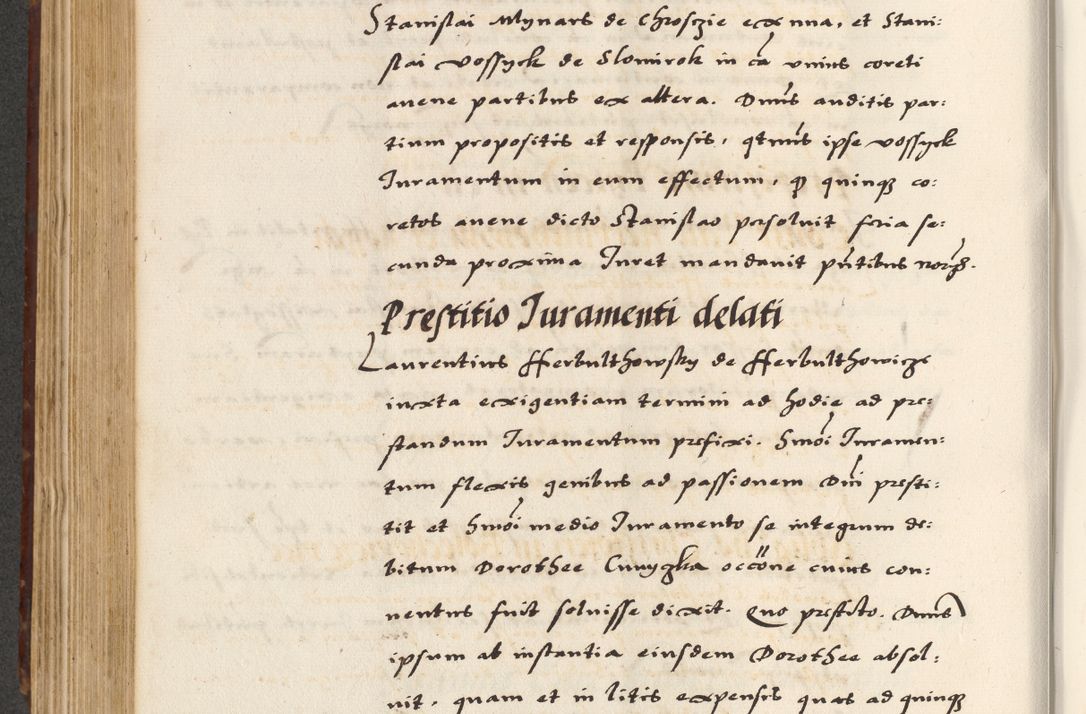 Stanislai Mlynars de Chroszie ex vna, et Stani:
slai Vossyck de Slomirok in cã vnius coreti
auene partibus ex altera. Dnus auditis par:
tium propositis et responsis, qtnus ipse vossyck
Iuramentum in eum effectum, qp quinqz co:
retos auene dicto Stanislao persoluit feria se:
cunda proxima Iuret mandauit pñtibus
Prestitio Iuramenti delati
Laurentius fferbulthowsky de fferbulthowicze
iuxta exigentiam termini ad hodie ad pre:
standum Iuramentum prefixi. Hmõi Iuramen:
tum flexis genibus ad passionem Dñi presti:
tit et Hmõi medio Iuramento se integrum de:
bitum Dorothee Cunyczka occõne cuius con:
uentus fuit soluisse dixit. Quo prestito. Dnus
ipsum ab instantia eiusdem Dorothee absol:
uit, quam et in litis expensis quas ad quinqz